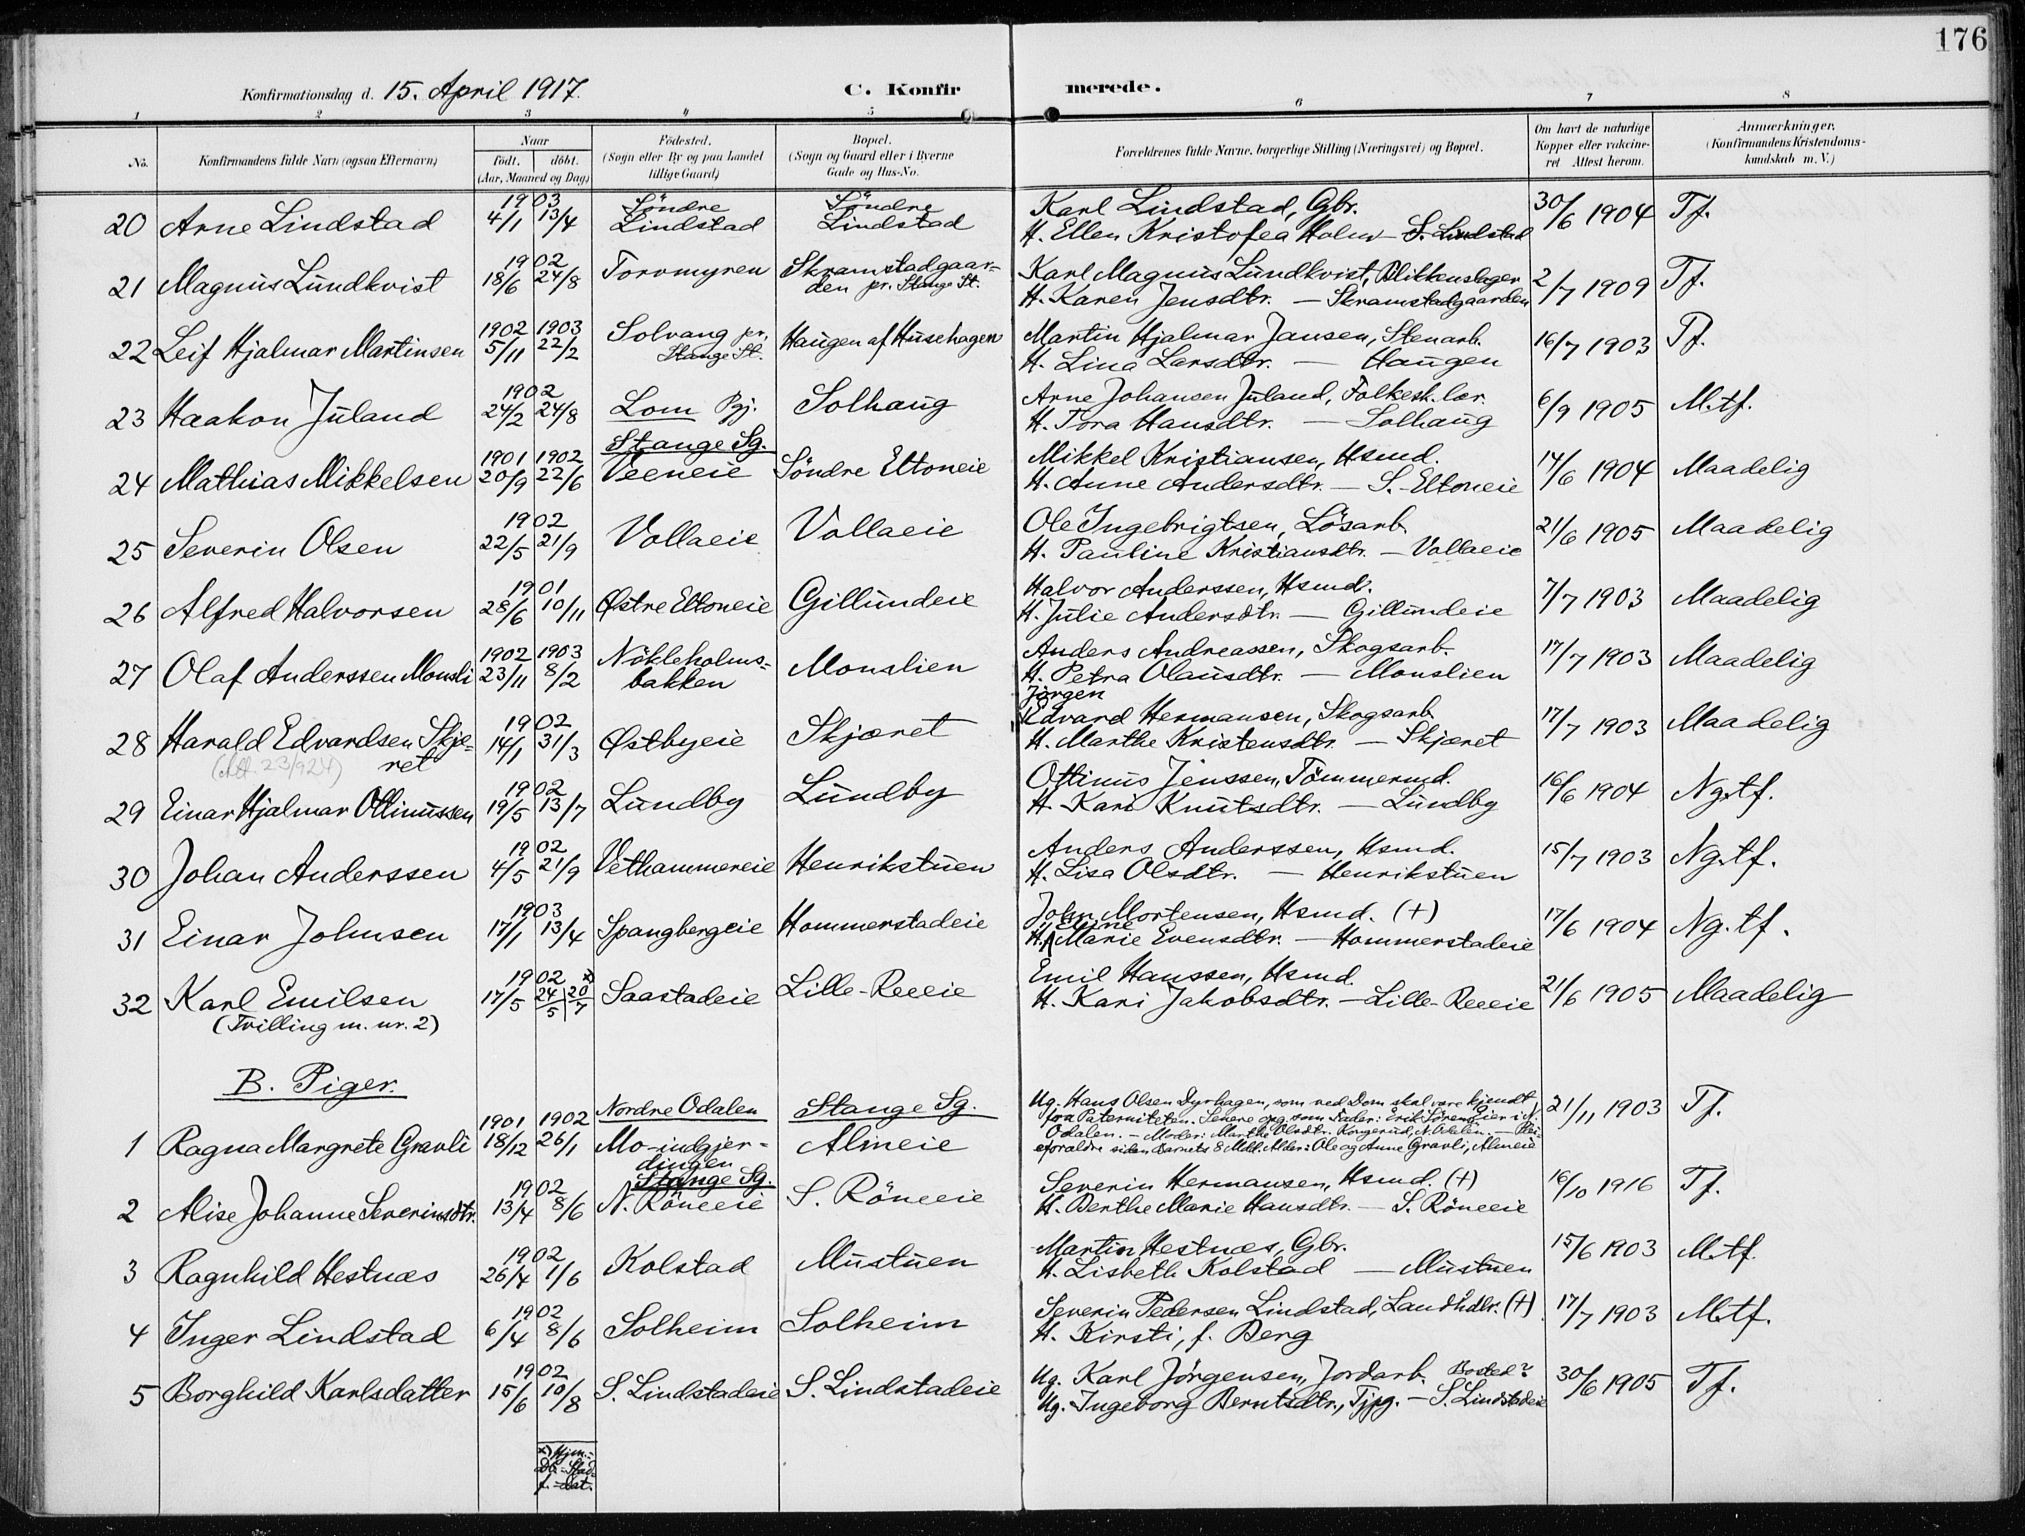 176
Konfirmationsdag d. 15. April 1917.
C. Konfirmerede.
1 2 3 4 5 6 7 8
No. Konfirmandens fulde Navn (ogsaa Efternavn)
Naar født. døbt. (Aar, Maaned og Dag)
Fødested. (Sogn eller By og paa Landet tillige Gaard)
Bopæl. (Sogn og Gaard eller i Byerne Gade og Hus-No.
Forældrenes fulde Navne, borgerlige Stilling (Næringsvei) og Bopæl.
Om havt de naturlige Kopper eller vakcineret Attest herom.
Anmærkninger. (Konfirmandens Kristendomskundskab m. V.)
20 Arne Lindstad 1903 4/1 13/4 Söndre Lindstad Söndre Lindstad Karl Lindstad, Gbr. 30/6 1904 Tf.
H. Ellen Kristofea Holm – S. Lindstad
21 Magnus Lundkvist 1902 18/6 24/8 Torvmyren Skramstadgaarden pr. Stange St. Karl Magnus Lundkvist, Blikkenslager 2/7 1909 Tf.
H. Karen Jensdtr. – Skramstadgaarden
22 Leif Hjalmar Martinsen 1902 5/11 1903 22/2 Solvang pr. Stange St. Haugen af Husehagen Martin Hjalmar Jansen, Stenarb. 16/7 1903 Tf.
H. Lina Larsdtr. – Haugen
23 Haakon Juland 1902 24/2 24/8 Lom Pgj. Solhaug Arne Johansen Juland, Folkesk. lær. 6/9 1905 M.tf.
H. Tora Hansdtr. – Solhaug
24 Mathias Mikkelsen 1901 20/9 1902 22/6 Stange Sg. Veeneie Söndre Eltoneie Mikkel Kristiansen, Hsmd. 14/6 1904 Maadelig
H. Anne Andersdtr. – S. Eltoneie
25 Severin Olsen 1902 22/5 21/9 Vollaeie Vollaeie Ole Ingebrigtsen, Lösarb. 21/6 1905 Maadelig
H. Pauline Kristiansdtr. – Vollaeie
26 Alfred Halvorsen 1901 28/6 10/11 Østre Eltoneie Gillundeie Halvor Anderssen, Hsmd. 7/7 1903 Maadelig
H. Julie Andersdtr. – Gillundeie
27 Olaf Anderssen Monsli 1902 23/11 1903 8/2 Nökleholmsbakken Monslien Anders Andreassen, Skogsarb. 17/7 1903 Maadelig
H. Petra Olausdtr. – Monslien
28 Harald Edvardsen Skjæret 1902 14/1 31/3 Østbyeie Skjæret Jörgen Edvard Hermansen, Skogsarb. 17/7 1903 Maadelig
(Att. 23/924) H. Marthe Kristensdtr. – Skjæret
29 Einar Hjalmar Ottinussen 1902 19/5 13/7 Lundby Lundby Ottinus Jenssen, Tömmermd. 16/6 1904 Ng.tf.
H. Kari Knutsdtr. – Lundby
30 Johan Anderssen 1902 4/5 21/9 Vethammereie Henrikstuen Anders Anderssen, Hsmd. 15/7 1903 Ng.tf.
H. Lisa Olsdtr. – Henrikstuen
31 Einar Johnsen 1903 17/1 13/4 Spangbergeie Hommerstadeie John Mortensen, Hsmd. (+) 17/6 1904 Ng.tf.
H. Eline Marie Evensdtr. – Hommerstadeie
32 Karl Emilsen 1902 17/5 24/5 x) 20/7 Saastadeie Lille-Reeeie Emil Hanssen, Hsmd. 21/6 1905 Maadelig
(Tvilling m. nr. 2) H. Kari Jakobsdtr. – Lille-Reeeie
B. Piger.
1 Ragna Margrete Gravli 1901 18/12 1902 26/1 Nordre Odalen Mo-indgjerdingen Stange Sg. Almeie Ug. Hans Olsen Dyrhagen, som ved Dom skal være kjendt 21/11 1903 Tf.
fra Paterniteten. Senere opg. som Fader: Erik Sörensen i N.
Odalen. – Moder: Marthe Olsdtr. Kongerud, N. Odalen. – Pleieforældre siden Barnets 8 Mdl. Alder: Ole og Anne Gravli, Almeie
2 Alise Johanne Severinsdtr. 1902 13/4 8/6 Stange Sg. N. Röneeie S. Röneeie Severin Hermansen, Hsmd. (+) 16/10 1916 Tf.
H. Berthe Marie Hansdtr. – S. Röneeie
3 Ragnhild Hestnæs 1902 26/4 1/6 Kolstad Mustuen Martin Hestnæs, Gbr. 15/6 1903 M.tf.
H. Lisbeth Kolstad – Mustuen
4 Inger Lindstad 1902 6/4 8/6 Solheim Solheim Severin Pedersen Lindstad, Landhdlr. (+) 17/7 1903 M.tf.
H. Kirsti, f. Berg
5 Borghild Karlsdatter 1902 15/6 10/8 S. Lindstadeie S. Lindstadeie Ug. Karl Jørgensen, Jordarb. Bosted? 30/6 1905 Tf.
Ug. Ingeborg Berntsdtr., Tjpg. – S. Lindstadeie
x) Hjem.-
Db.-Stad-
f.-dat.